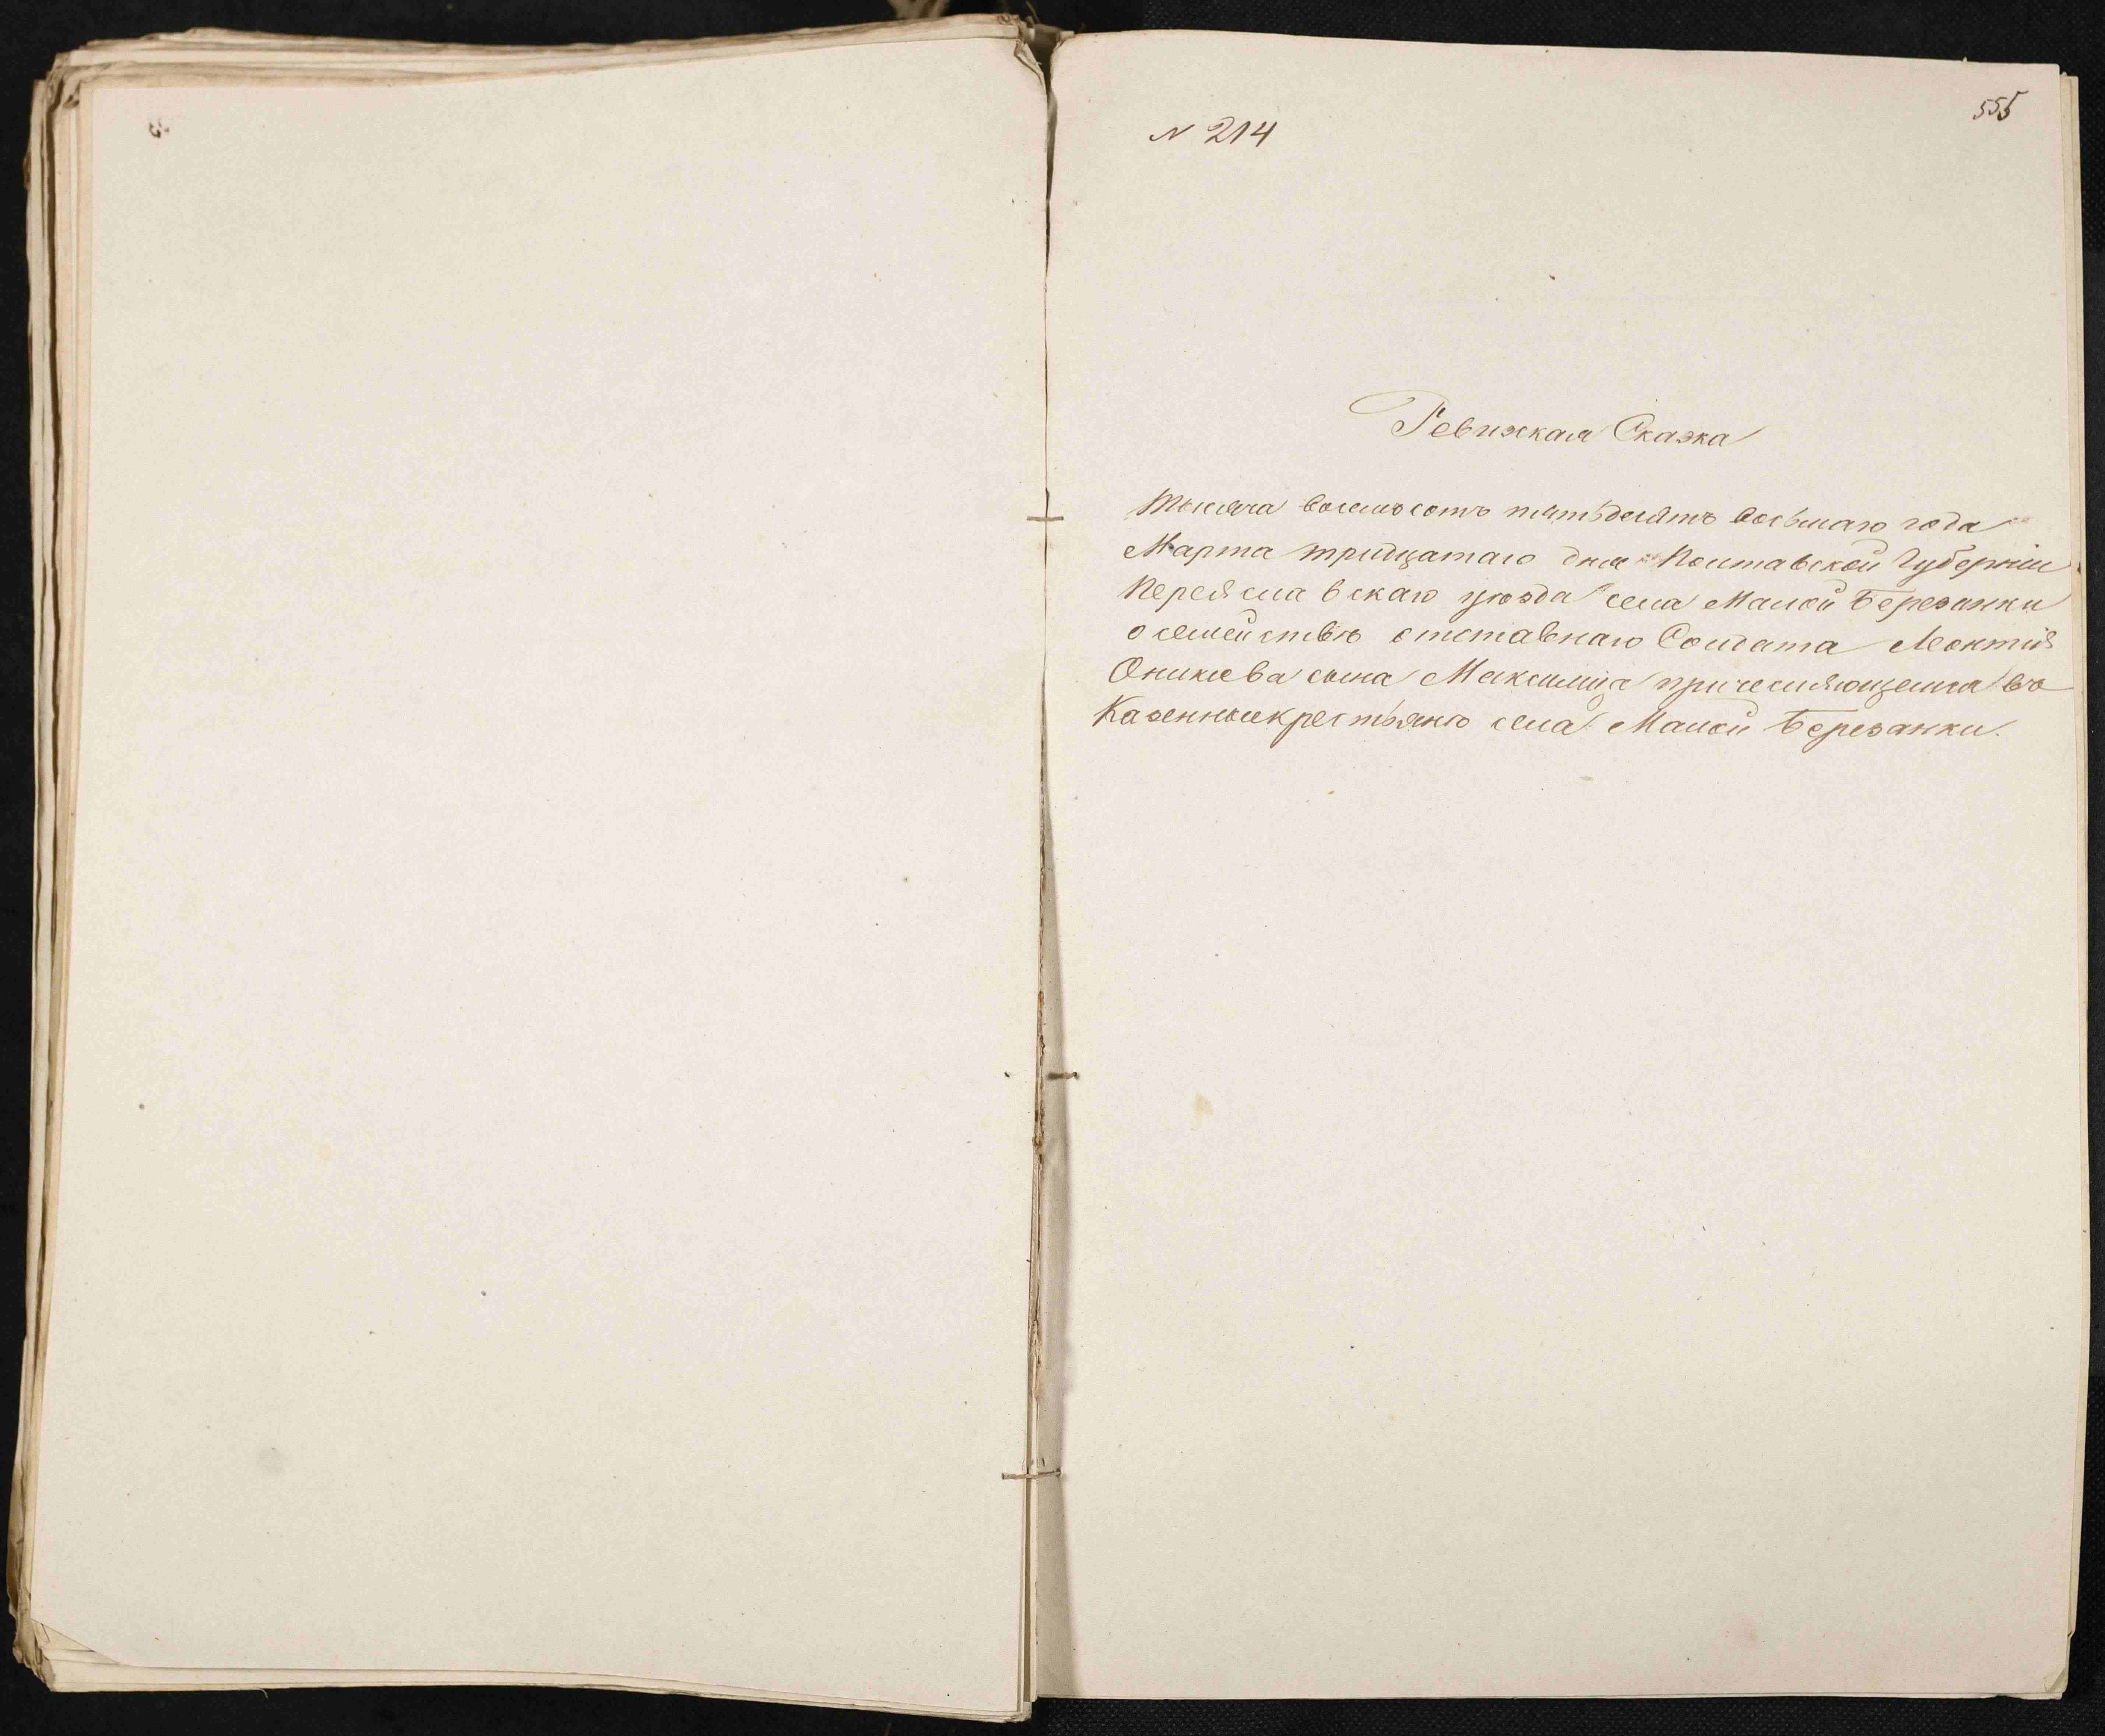 555
N 214
Ревижская Сказка
Тысяча восемьсотъ пятьдесятъ восьмаго года
Марта тридцатаго дня Полтавской Губерніи
Переяславскаго уѣзда села Малой Березанки
о семействѣ отставнаго Солдата Леонтія
Оникіева сына причесляющемся въ
Казенныекрестьяне села Малой Березанки.